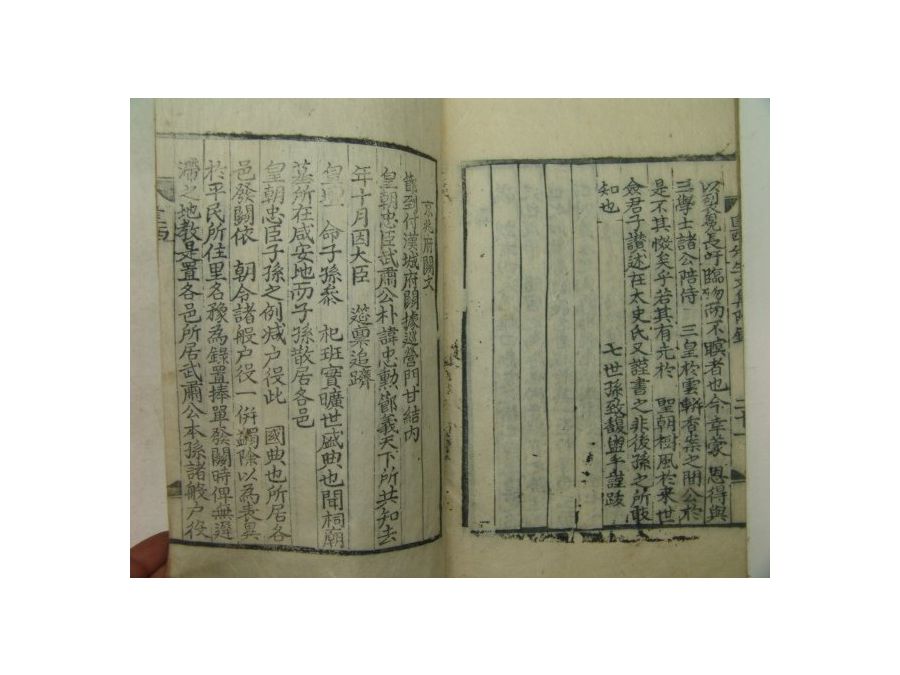 以刻冤長吁臨歿而不瞑者也今幸蒙 恩得與
三學士諸公陪侍 三皇於雲軿香案之間公於
是不其慊矣乎若其有光於 聖朝樹風於來世
僉君子讚述在太史氏又謹書之非後孫之所敢
知也 七世孫致馥盥手謹跋
京兆府關文
節到付漢城府關據巡營門甘結內
皇朝忠臣武肅公朴諱忠勳節義天下所共知去
年十月因大臣 筵稟追躋
皇壇 命子孫參 祀班實曠世盛典也聞祠廟
墓所在咸安地而子孫散居各邑
皇朝忠臣子孫之例減戶役此 國典也所居各
邑發關依 朝令諸般戶役一倂蠲除以爲表異
於平民所住里名殺爲錄置捧單發關時俾無遲
滯之地敎是置各邑所居武肅公本孫諸般戶役